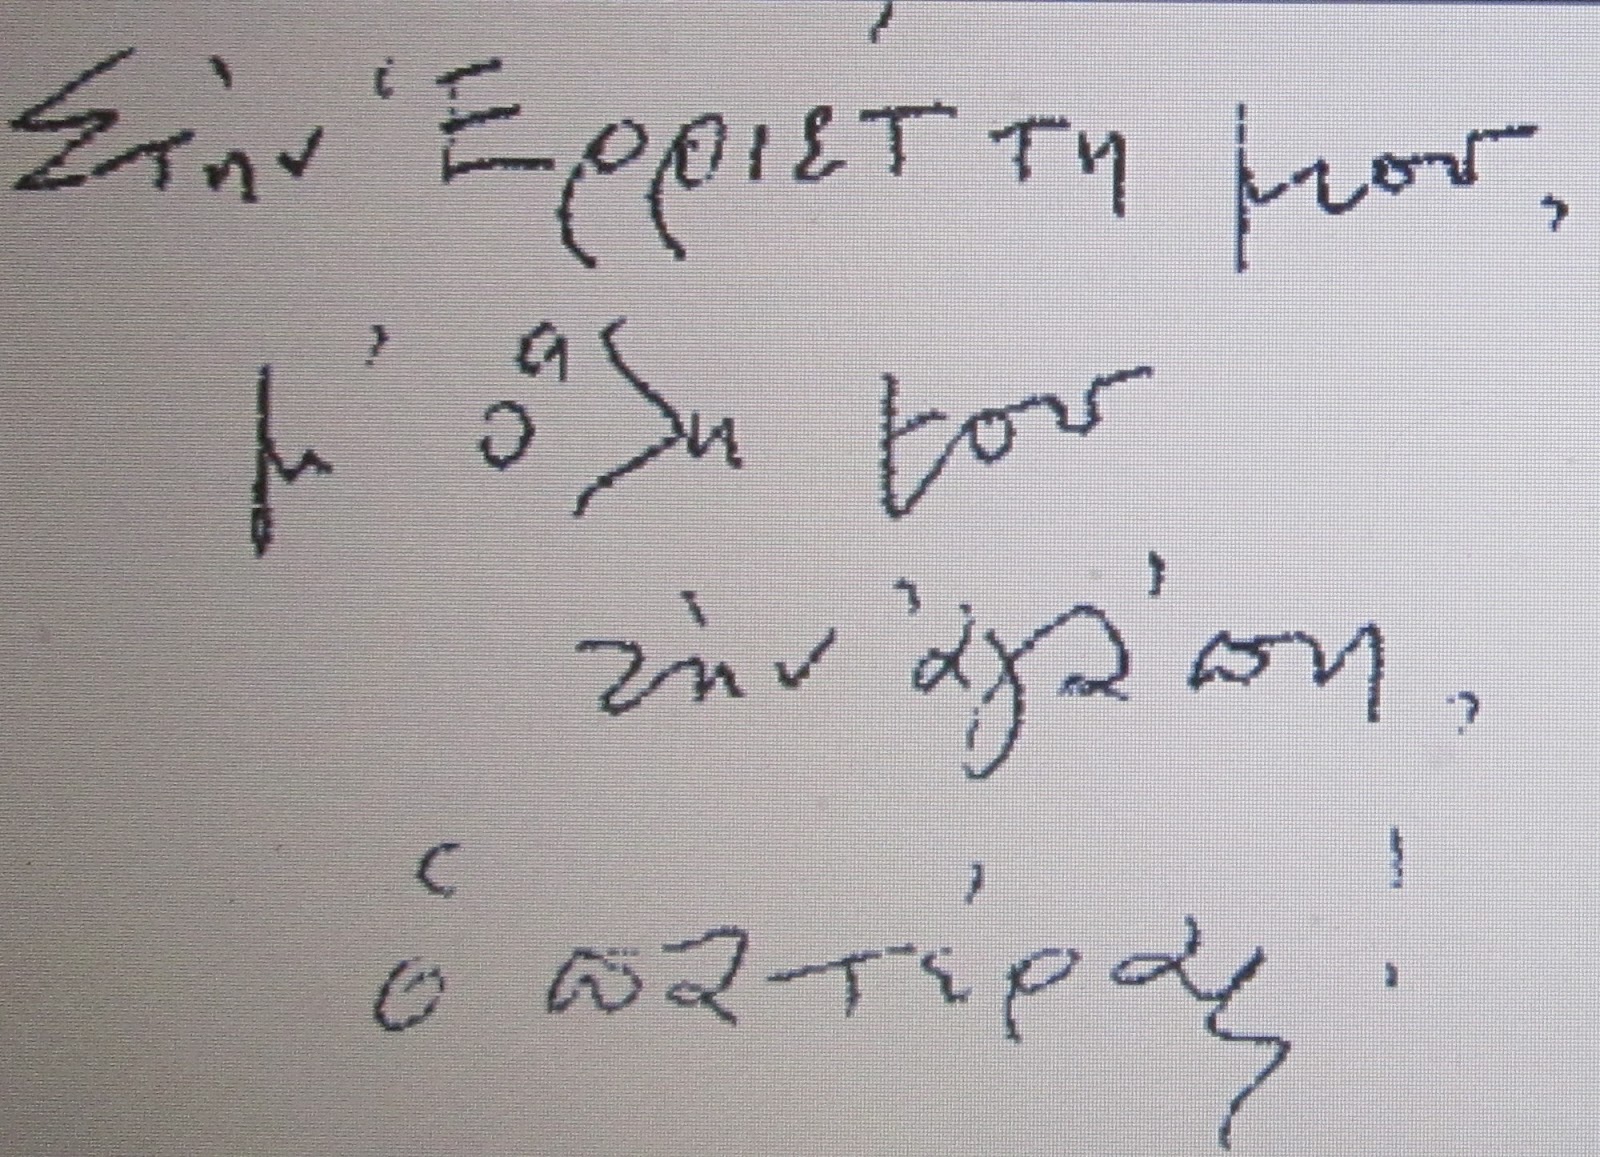 Στὴν Ἑρριέττη μου,
μ' ὅλη μου
τὴν ἀγάπη,
ὁ πατέρας!